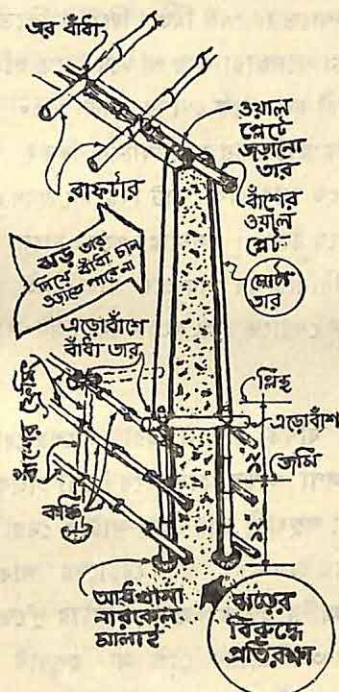 তার বাঁধা
ওয়াল
প্লেটে
জড়ানো
তার
রাফটার
বাঁশের
ওয়াল
প্লেট
মোটা
তার
ঝড় তার
দিয়ে বাঁধা চাল
ওড়াতে পারে না
এড়োবাঁশে
বাঁধা তার
প্লিন্থ
এড়োবাঁশ
জমি
বাঁশের খুঁটি
কঞ্চি
আধখানা
নারকেল
মালাই
ঝড়ের
বিরুদ্ধে
প্রতিরক্ষা